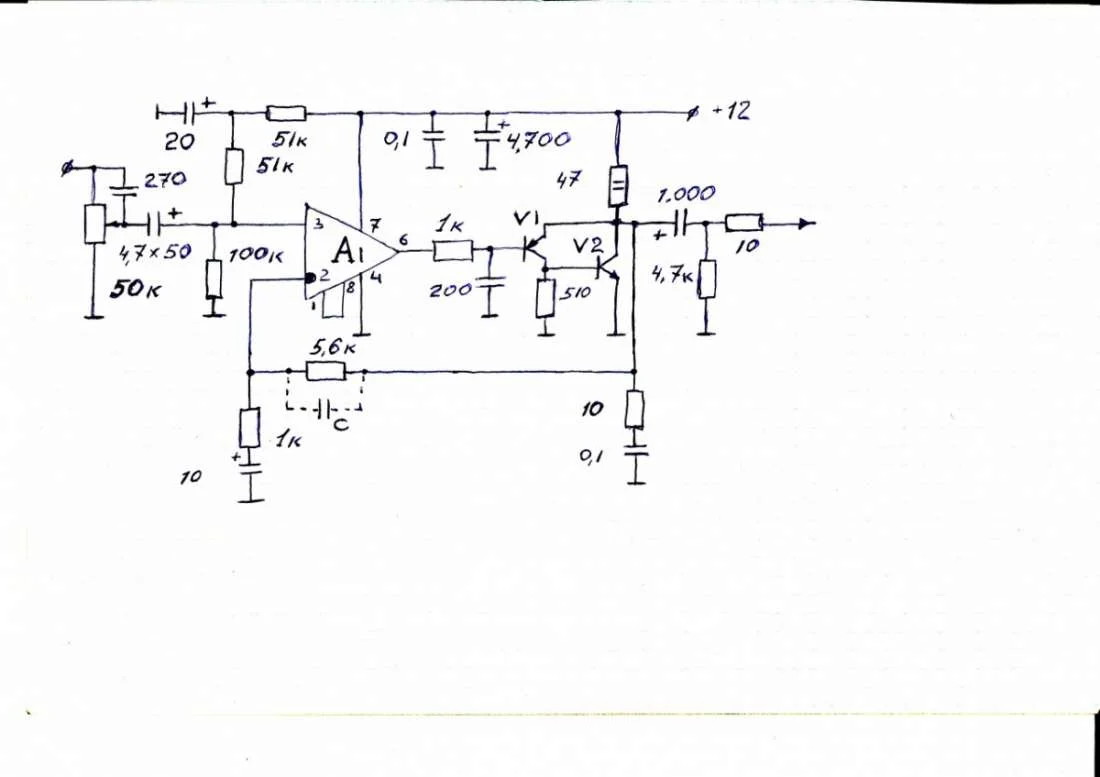 +12
+
20
51к
51к
0,1
+
4,700
270
47
1.000
+
4,7×50
50к
100к
3
7
A1
6
2
8
4
1
1к
200
V1
V2
510
+
4,7к
10
5,6к
C
1к
+
10
10
0,1